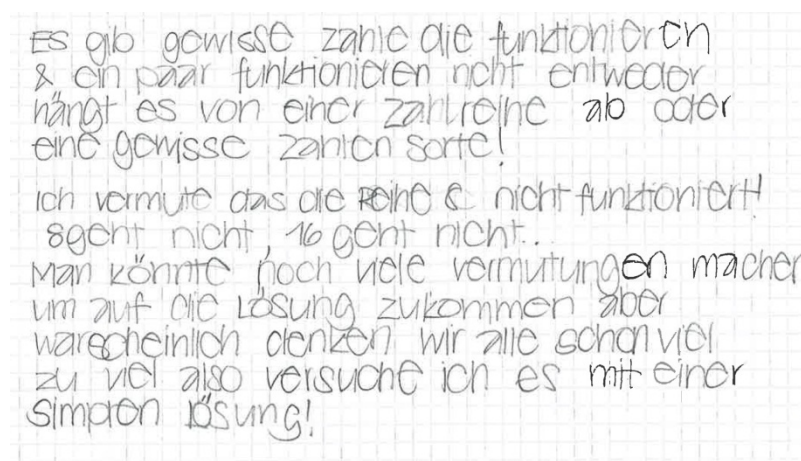 ES gib gewisse zahle die funktionieren
& ein paar funktionieren nicht entweder
hängt es von einer zahlreihe ab oder
eine gewisse zahlen sorte!
ich vermute das die Reihe 8 nicht funktioniert!
8geht nicht, 16 geht nicht...
Man könnte noch viele vermutungen machen
um auf die Lösung zukommen aber
warscheinlich denken wir alle schon viel
zu viel also versuche ich es mit einer
simplen lösung!